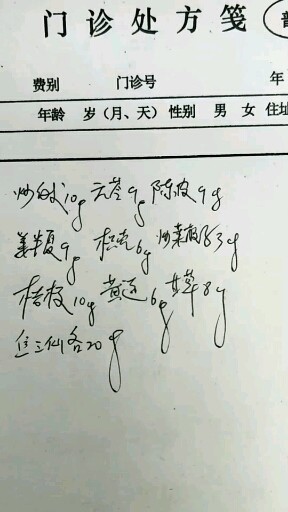 门诊处方笺
普
费别 门诊号 年
年龄 岁(月、天) 性别 男 女 住址
炒白术10g 云苓9g 陈皮9g
姜半夏9g 枳壳6g 炒莱菔子3g
桔梗10g 黄连6g 甘草8g
焦三仙各20g